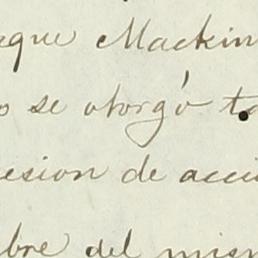 eque Mackin
o se otorgó ta
esion de acci
bre del mism